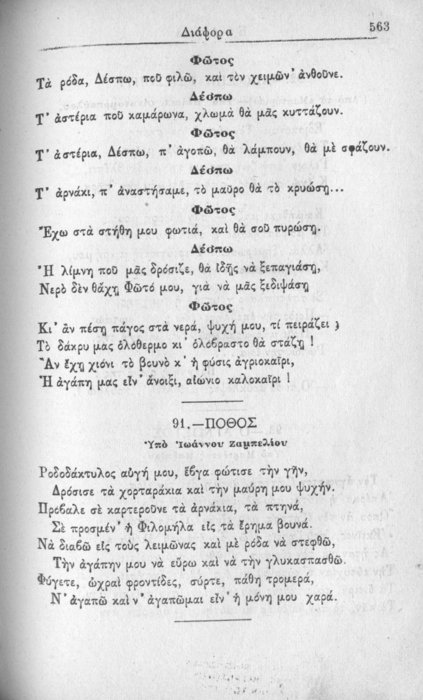 Διάφορα
563
Φῶτος
Τὰ ρόδα, Δέσπω, ποῦ φιλῶ, καὶ τὸν χειμῶν' ἀνθοῦνε.
Δέσπω
Τ' ἀστέρια ποῦ καμάρωνα, χλωμὰ θὰ μᾶς κυττάζουν.
Φῶτος
Τ' ἀστέρια, Δέσπω, π' ἀγοπῶ, θὰ λάμπουν, θὰ μὲ σφάζουν.
Δέσπω
Τ' ἀρνάκι, π' ἀναστήσαμε, τὸ μαῦρο θὰ τὸ κρυώσῃ...
Φῶτος
Ἔχω στὰ στήθη μου φωτιά, καὶ θὰ σοῦ πυρώσῃ.
Δέσπω
Ἡ λίμνη ποῦ μᾶς δρόσιζε, θὰ ἰδῇς νὰ ξεπαγιάσῃ,
Νερὸ δὲν θἄχῃ Φῶτό μου, γιὰ νὰ μᾶς ξεδιψάσῃ
Φῶτος
Κι' ἂν πέσῃ πάγος στὰ νερά, ψυχή μου, τί πειράζει ;
Τὸ δάκρυ μας ὁλόθερμο κι' ὁλόβραστο θὰ στάζῃ !
Ἂν ἔχῃ χιόνι τὸ βουνὸ κ' ἡ φύσις ἀγριοκαῖρι,
Ἡ ἀγάπη μας εἶν' ἄνοιξι, αἰώνιο καλοκαῖρι !
91.—ΠΟΘΟΣ
Ὑπὸ Ἰωάννου Ζαμπελίου
Ροδοδάκτυλος αὐγή μου, ἔβγα φώτισε τὴν γῆν,
Δρόσισε τὰ χορταράκια καὶ τὴν μαύρη μου ψυχήν.
Πρόβαλε σὲ καρτεροῦνε τὰ ἀρνάκια, τὰ πτηνά,
Σὲ προσμέν' ἡ Φιλομήλα εἰς τὰ ἔρημα βουνά.
Νὰ διαβῶ εἰς τοὺς λειμῶνας καὶ μὲ ρόδα νὰ στεφθῶ,
Τὴν ἀγάπην μου νὰ εὕρω καὶ νὰ τὴν γλυκασπασθῶ.
Φύγετε, ὠχραὶ φροντίδες, σύρτε, πάθη τρομερά,
Ν' ἀγαπῶ καὶ ν' ἀγαπῶμαι εἶν' ἡ μόνη μου χαρά.